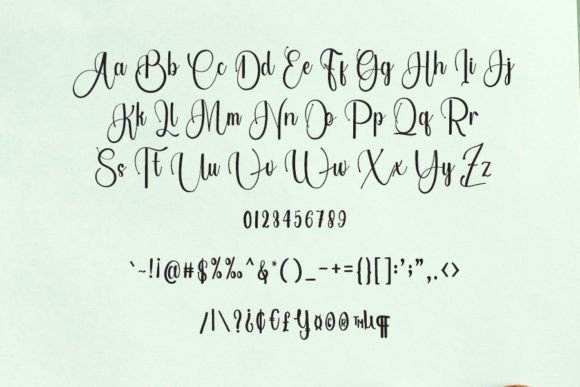 Aa Bb Cc Dd Ee Ff Gg Hh Ii Jj
Kk Ll Mm Nn Oo Pp Qq Rr
Ss Tt Uu Vv Ww Xx Yy Zz
0123456789
`~!¡@#$%‰^&*()_-+={}[]:';",.<>
/|\?¿¢€£¥¤©®™µ¶